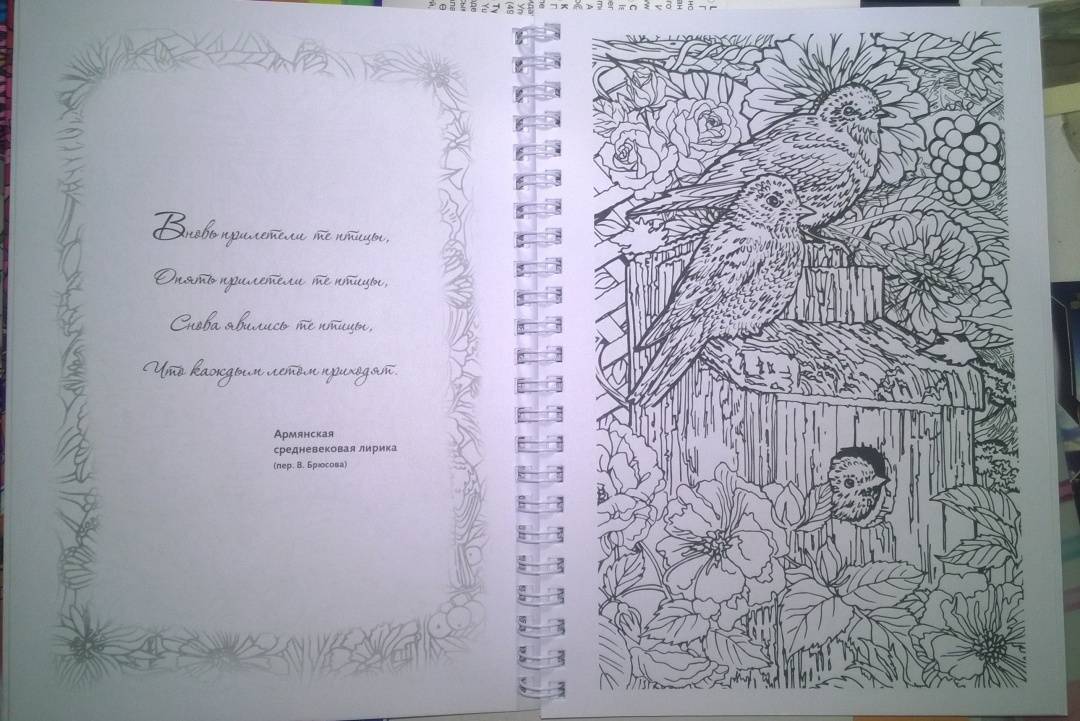 Вновь прилетели те птицы,
Опять прилетели те птицы,
Снова явились те птицы,
Что каждым летом приходят.
Армянская
средневековая лирика
(пер. В. Брюсова)